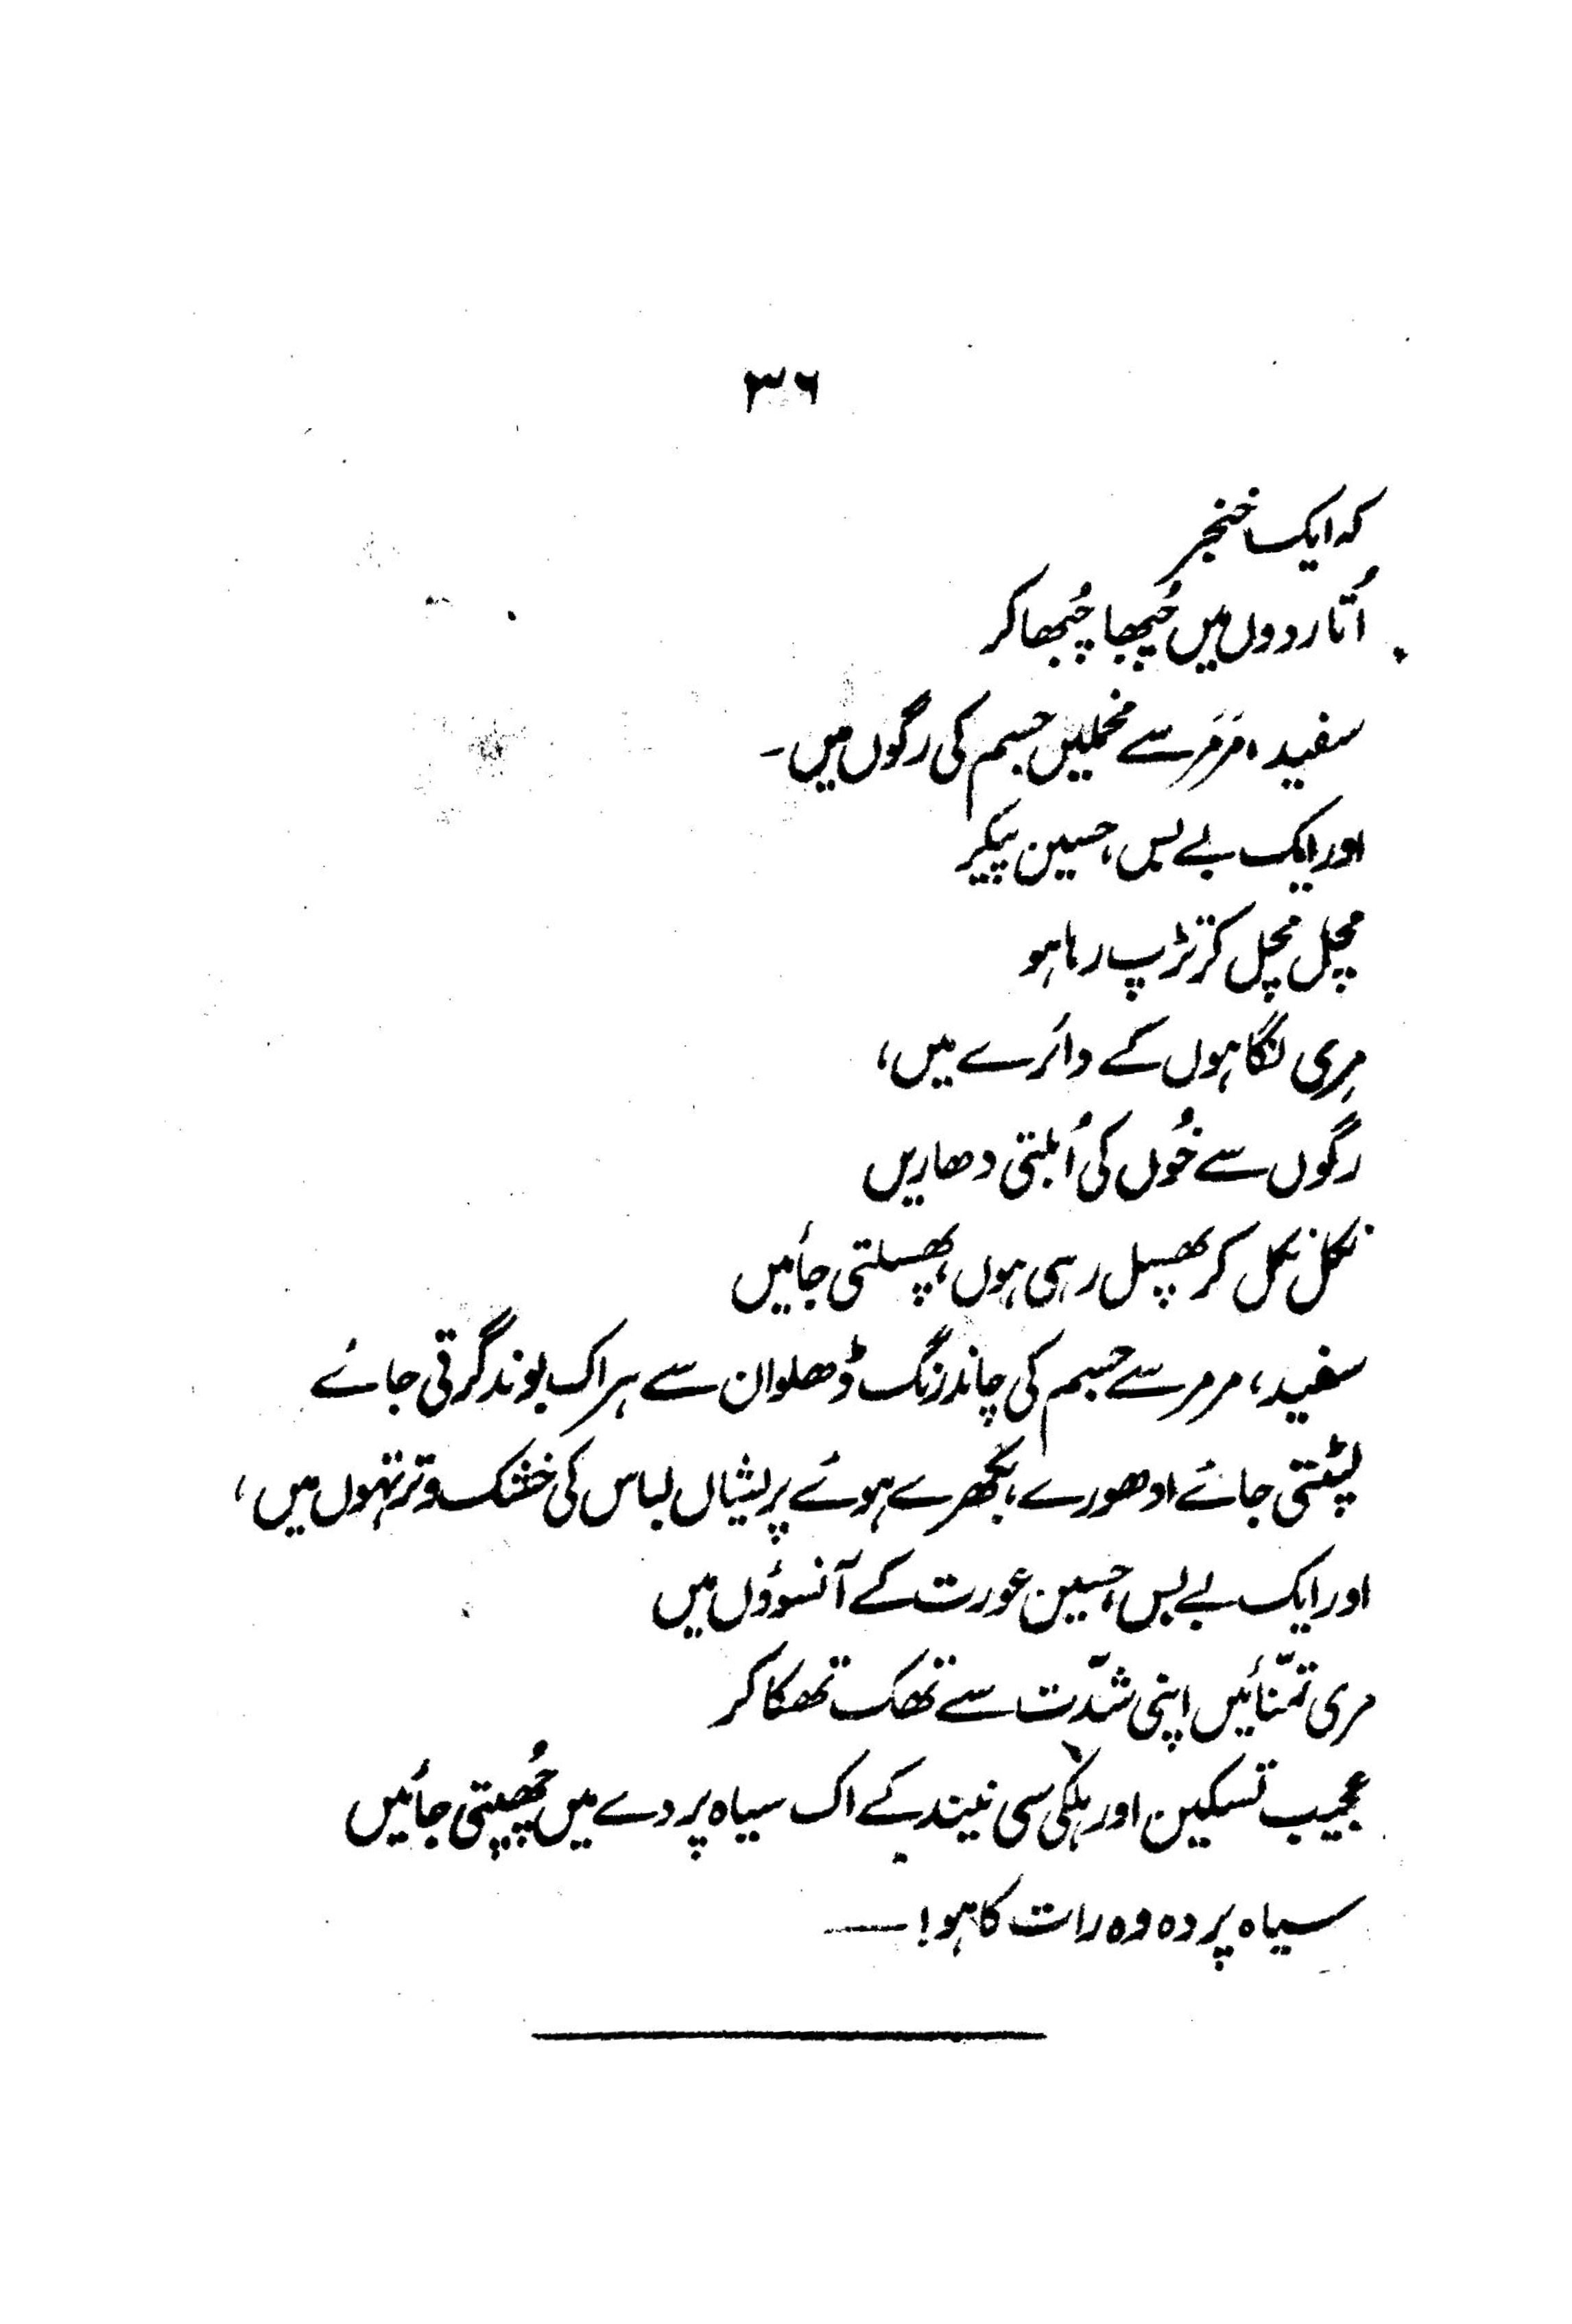 ۳۶
کہ ایک خنجر
اُتار دوں میں چُبھا چُبھا کر
سفید، مَرمَر سے مخملیں جسم کی رگوں میں۔
اور ایک بے بس، حسین پیکر
مچل مچل کر تڑپ رہا ہو
مِری نگاہوں کے دائرے میں،
رگوں سے خُوں کی اُبلتی دھاریں
نکل نکل کر پھسل رہی ہوں، پھسلتی جائیں
سفید، مرمر سے جسم کی چاند رنگ ڈھلوان سے ہر اک بوند گرتی جائے
لپٹتی جائے ادھورے، بکھرے ہوئے پریشاں لباس کی خشک و تر تہوں میں،
اور ایک بے بس، حسین عورت کے آنسوؤں میں
مری تمنّائیں اپنی شدّت سے تھک تھکا کر
عجیب تسکین اور ہلکی سی نیند کے اک سیاہ پردے میں چُھپتی جائیں
سیاہ پردہ وہ رات کا ہو! —